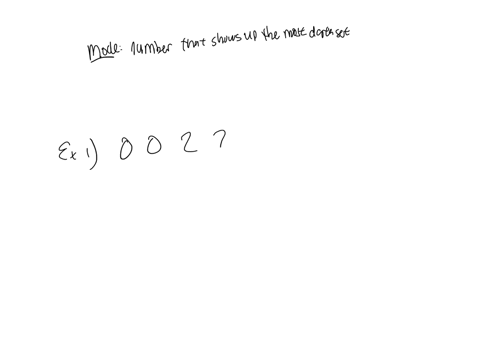 Mode: number that shows up the most data set
Ex 1) 0 0 2 2